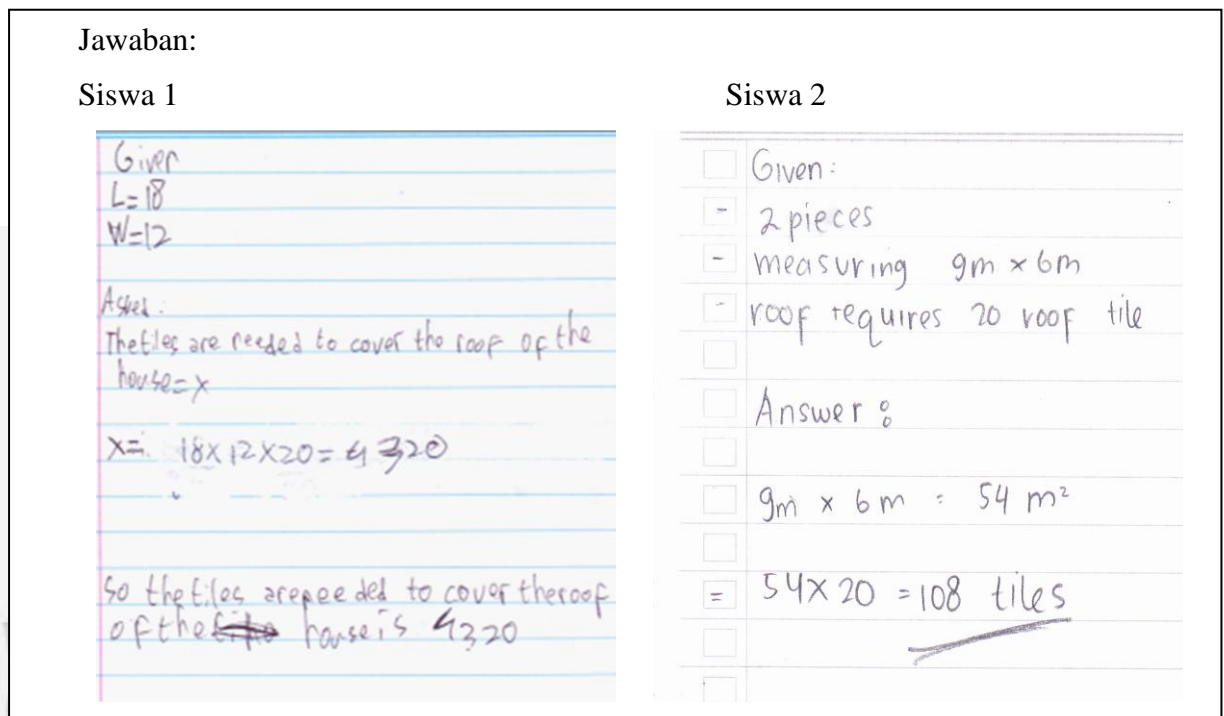 Jawaban:
Siswa 1
Given
L=18
W=12
Asked:
The tiles are needed to cover the roof of the
house=x
x= 18x12x20=4320
So the tiles are needed to cover the roof
of the house is 4320
Siswa 2
Given:
- 2 pieces
- measuring 9m x 6m
- roof requires 20 roof tile
Answer:
9m x 6m = 54 m²
= 54x20 = 108 tiles